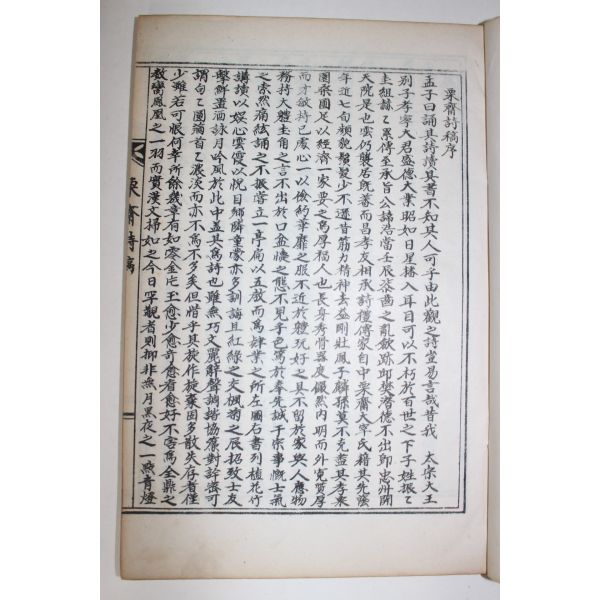 栗齋詩稿序
孟子曰誦其詩讀其書不知其人可乎由此觀之詩豈易言哉昔我 太宗大王
別子孝寧大君盛德大業昭如日星播人耳目可以不朽於百世之下子姓振之
圭組赫之累傳至承旨公諱浩當壬辰柒齒之亂斂跡邱樊潛德不出卽忠州開
天院是也雲仍襲居旣蕃而昌孝友相承詩禮傳家自中栗齋大宰氏籍其先蔭
年近七旬顏貌鬚髮少不遷昔筋力精神去益剛壯鳳子麟孫莫不克盡其孝桑
園柴圃足以經濟一家要之爲厚福人也長身秀骨器度儼然內明而外寬質厚
而才敏持己處心一以儉約華靡之服不近於體玩好之具不留於家與人應物
務持大體圭角之言不出於口忿懥之態不見乎色篤於奉先誠于宗事慨士氣
之索然痛絃誦之不振營立一亭扁以五戲而爲肄業之所左圖右書列植花竹
講讀以娛心雲霞以悅目鄉隣童蒙亦多訓誨且紅綠之交楓菊之辰招致士友
擊鮮置酒詠月吟風於此中盖其爲詩也雖無巧文麗辭聲調諧協儷對詮密可
謂句之圓滿首之濃淡而亦不爲不多矣但惜乎其旋作旋棄因多散失存者僅
少雖若可恨何幸所餘幾章有如零金片玉愈少愈奇愈看愈好不啻爲全鼎之
一臠鸞鳳之一羽而實漢文掃如之今日罕觀者則抑非無月黑夜之一點青燈
栗齋詩稿